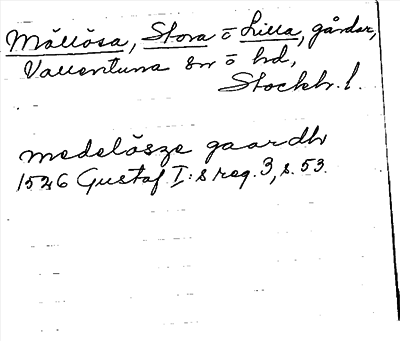 Mällösa, Stora o Lilla, gårdar,
Vallentuna sn o hd,
Stockh. l.
medelösze gaardh
1526 Gustaf I:s reg. 3, s. 53.